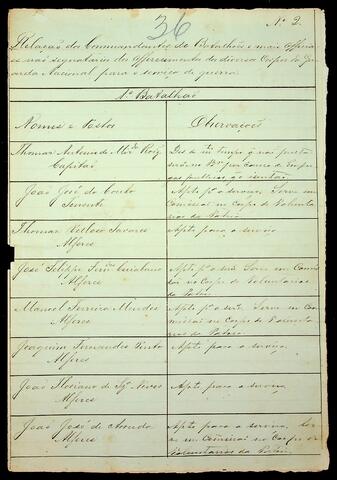 36
Nº 2.
Relação dos Commandantes de Batalhões e mais officia
es não signatarios dos offerecimentos dos diversos Corpos da Gu
arda Nacional para o serviço de guerra.
1º Batalhaõ
Nomes e postos
Observações
Thomaz Antonio de
Capitaõ
João José do Couto
Tenente
Apto pª o serviço, Serve em
Commissaõ no Corpo de Volunta
rios da Patria
Thomaz Tavares
Alferes
Apto pª o serviço
José Felippe
Alferes
Apto pª o serv. Serve em Commis
saõ no Corpo de Voluntarios
da Patria
Manoel Ferreira Mendes
Alferes
Apto pª o serv. Serve em Com
missaõ no Corpo de Volunta
rios da Patria
Joaquim Fernandes Pinto
Alferes
Apto para o serviço,
João Floriano de Neves
Alferes
Apto para o serviço
João José de
Alferes
Apto para o serviço, Ser
ve em Commissaõ no Corpo de
Voluntarios da Patria